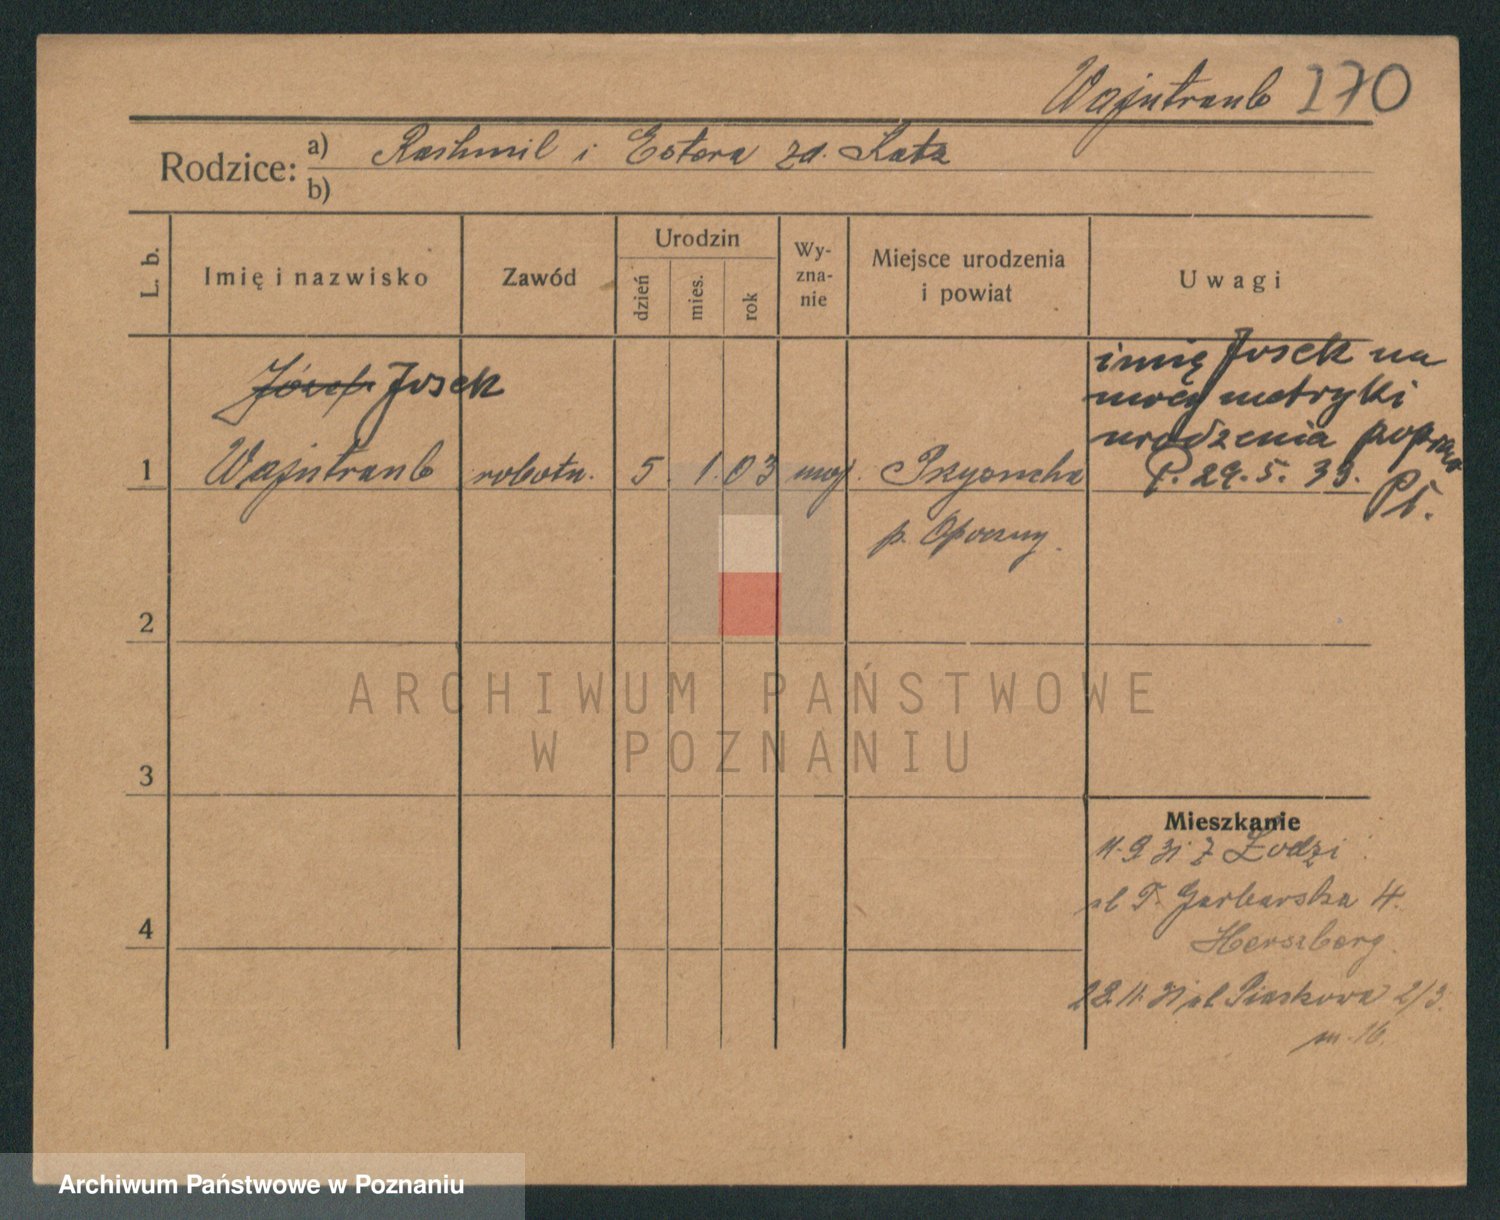 Wajntraub 270
Rodzice: a) Rachmil i Estera zd. Katz
b)
L. b. Imię i nazwisko Zawód Urodzin dzień mies. rok Wy-zna-nie Miejsce urodzenia i powiat Uwagi
Józef Josek
1 Wajntraub robotn. 5. 1. 03 mojż.
p. Opoczny.
imię Josek na
mocy metryki
urodzenia popraw
P. 29. 5. 39.
2
3
4
Mieszkanie
z Łodzi
ul T. Garbarska 4.
Herszberg.
ul. Piaskowa 2/3.
m. 16.
ARCHIWUM PAŃSTWOWE
W POZNANIU
Archiwum Państwowe w Poznaniu